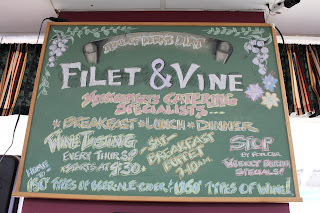 FILET & VINE
CATERING
SPECIALISTS...
*BREAKFAST*LUNCH*DINNER
WINE TASTING
EVERY THURS!
*STARTS AT 5:30*
-SAT-
BREAKFAST
BUFFET
7-10AM
STOP
BY FOR OUR
WEEKLY
SPECIALS!
HOME
TYPES OF BEER·ALE·CIDER! & 1850 TYPES OF WINE!